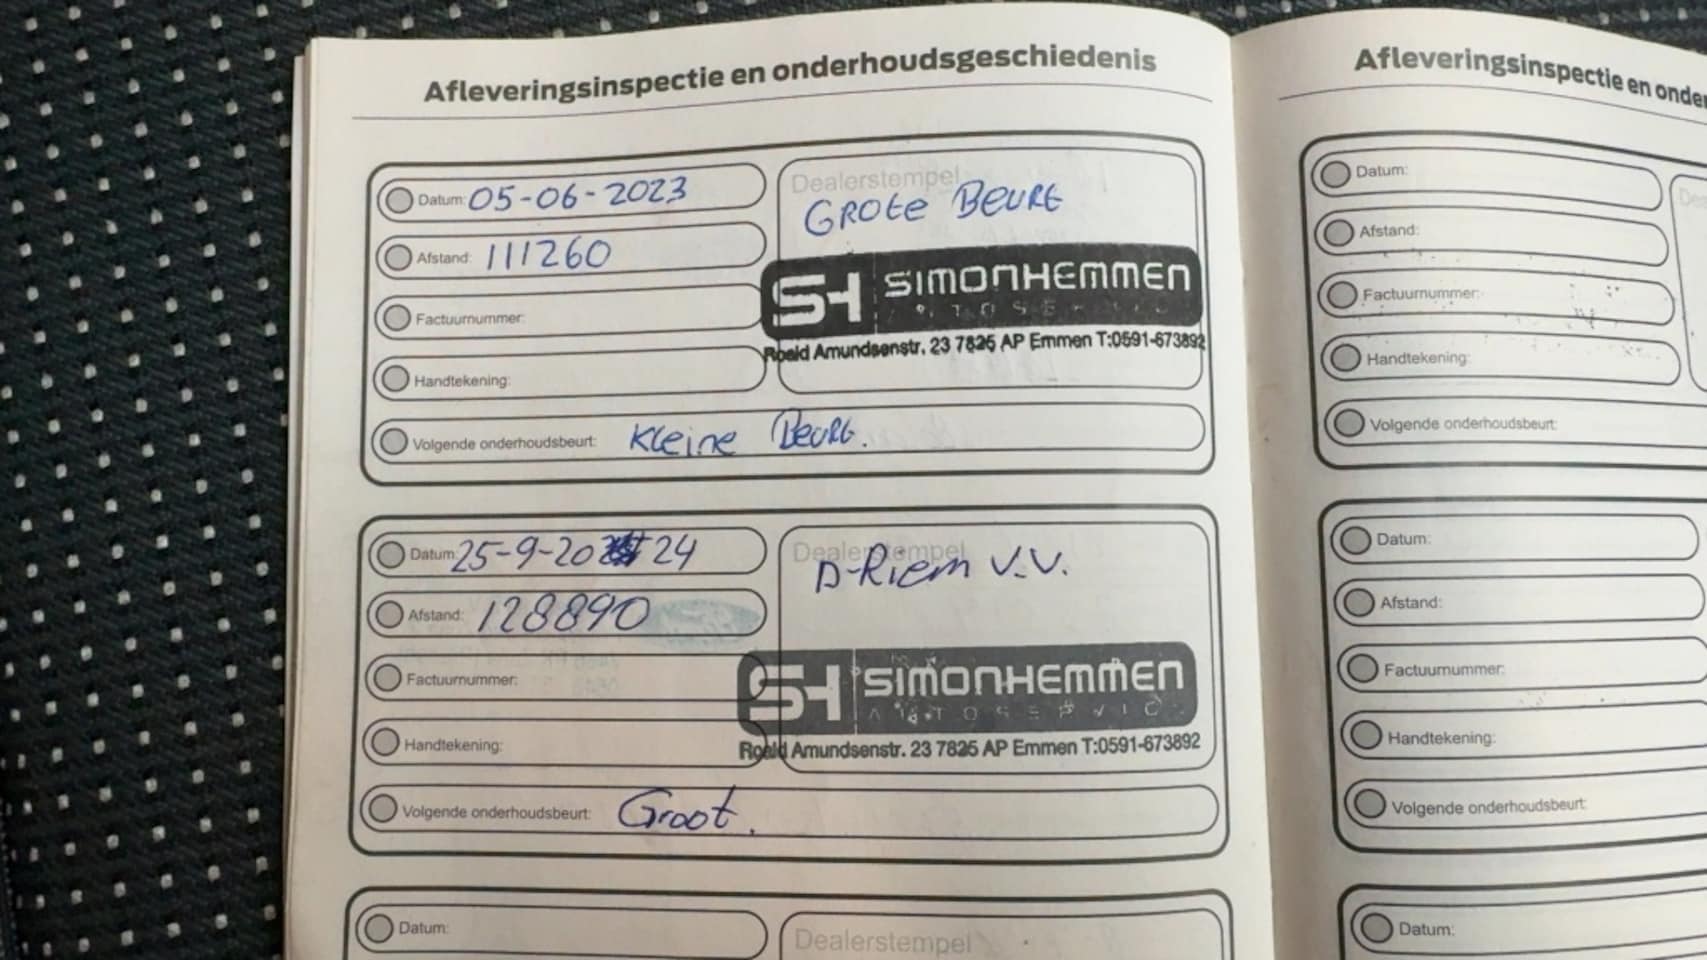 Afleveringsinspectie en onderhoudsgeschiedenis
Datum: 05-06-2023
Afstand: 111260
Factuurnummer:
Handtekening:
Volgende onderhoudsbeurt: Kleine Beurt.
Dealerstempel
GROte BEURt
SH SIMONHEMMEN
Roald Amundsenstr. 23 7825 AP Emmen T:0591-673892
Datum: 25-9-20 24
Afstand: 128890
Factuurnummer:
Handtekening:
Volgende onderhoudsbeurt: Groot.
Dealerstempel
D-Riem V.V.
SH SIMONHEMMEN
AUTOSERVICE
Roald Amundsenstr. 23 7825 AP Emmen T:0591-673892
Datum:
Dealerstempel
Afleveringsinspectie en onder
Datum:
Afstand:
Factuurnummer:
Handtekening:
Volgende onderhoudsbeurt:
Datum:
Afstand:
Factuurnummer:
Handtekening:
Volgende onderhoudsbeurt:
Datum: